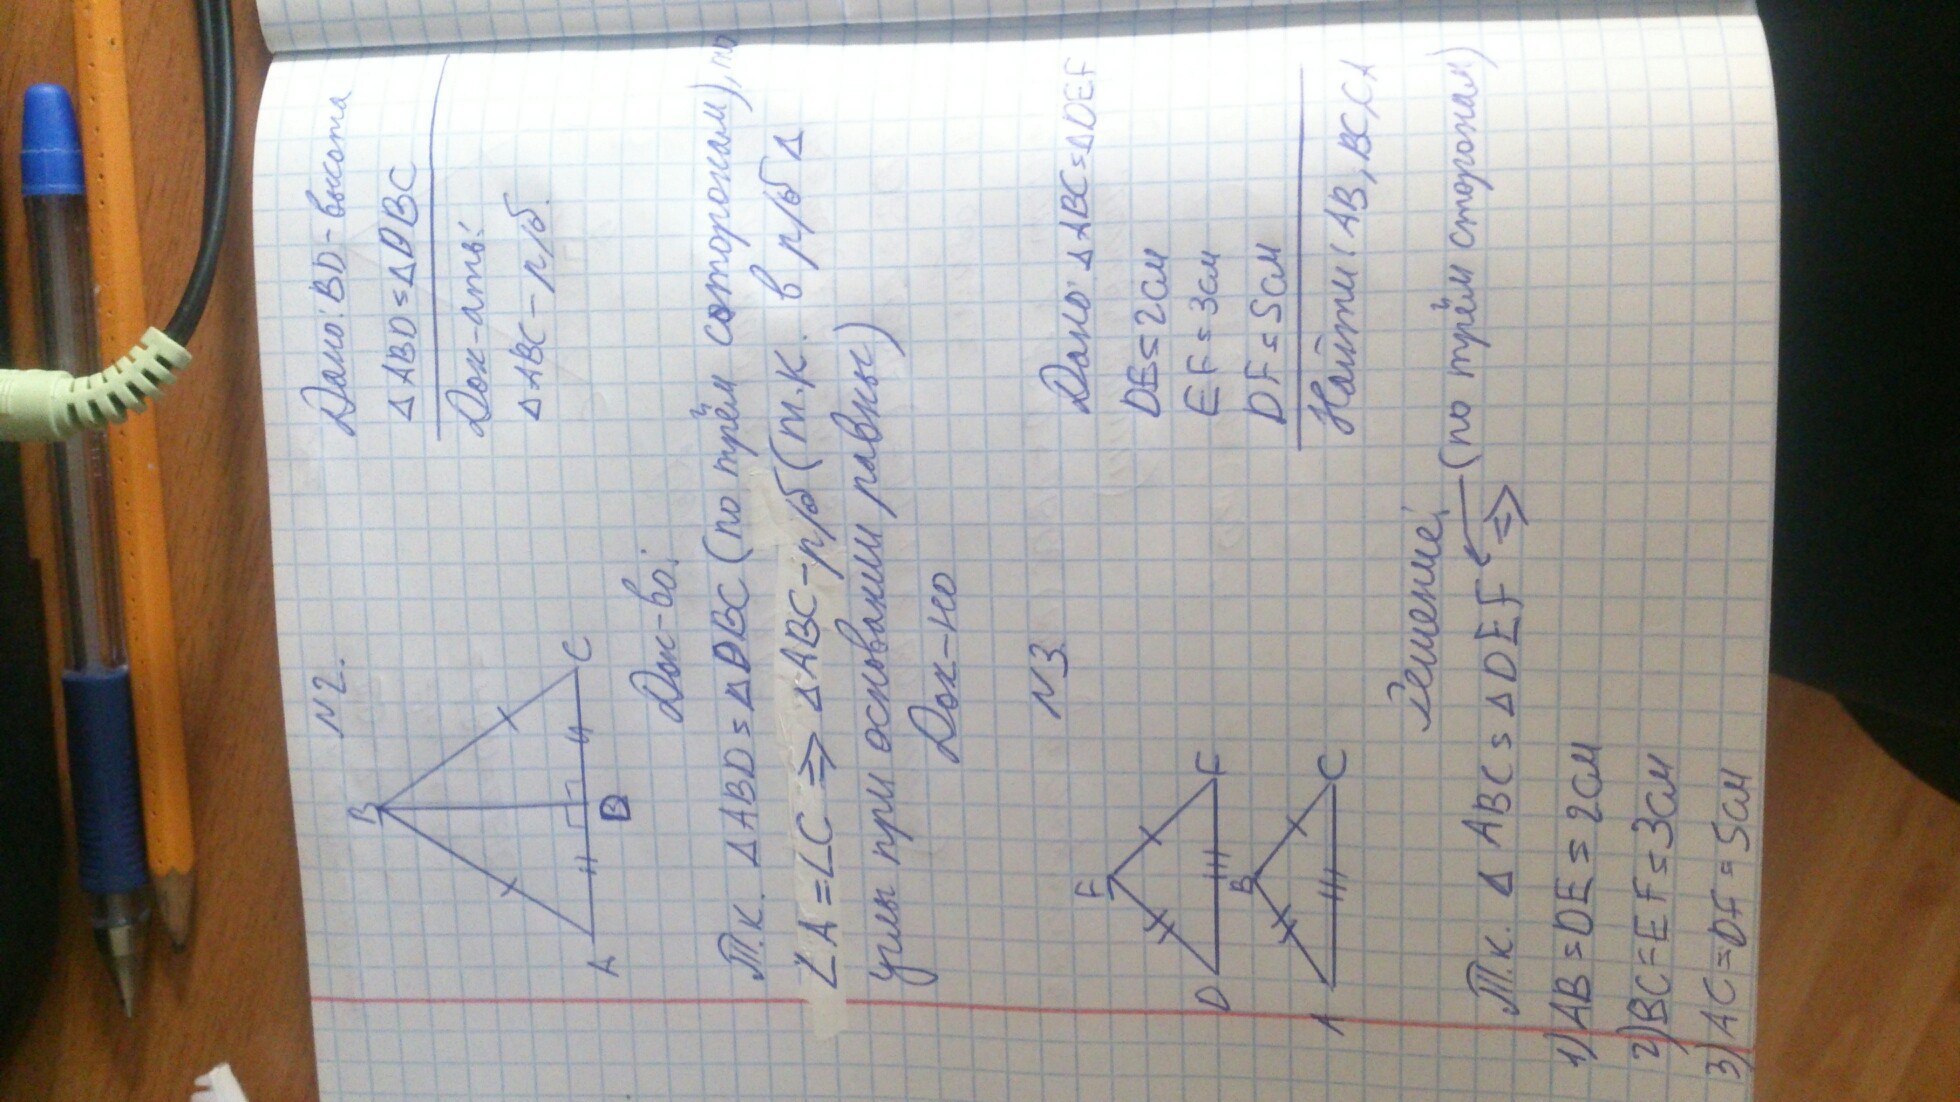 N2.
B
A
D
C
Дано: BD - высота
ΔABD = ΔDBC
Док-ать:
ΔABC - р/б.
Док-во:
Т.к. ΔABD = ΔDBC (по трём сторонам), то
∠A = ∠C => ΔABC - р/б (т.к. в р/б Δ
углы при основании равны)
Док-но
N3.
F
D
F
B
A
C
Дано: ΔABC = ΔDEF
DE = 2см
EF = 3см
DF = 5см
Найти: AB, BC, CA
Решение:
Т.к. ΔABC = ΔDEF (по трём сторонам)
=>
1) AB = DE = 2см
2) BC = EF = 3см
3) AC = DF = 5см